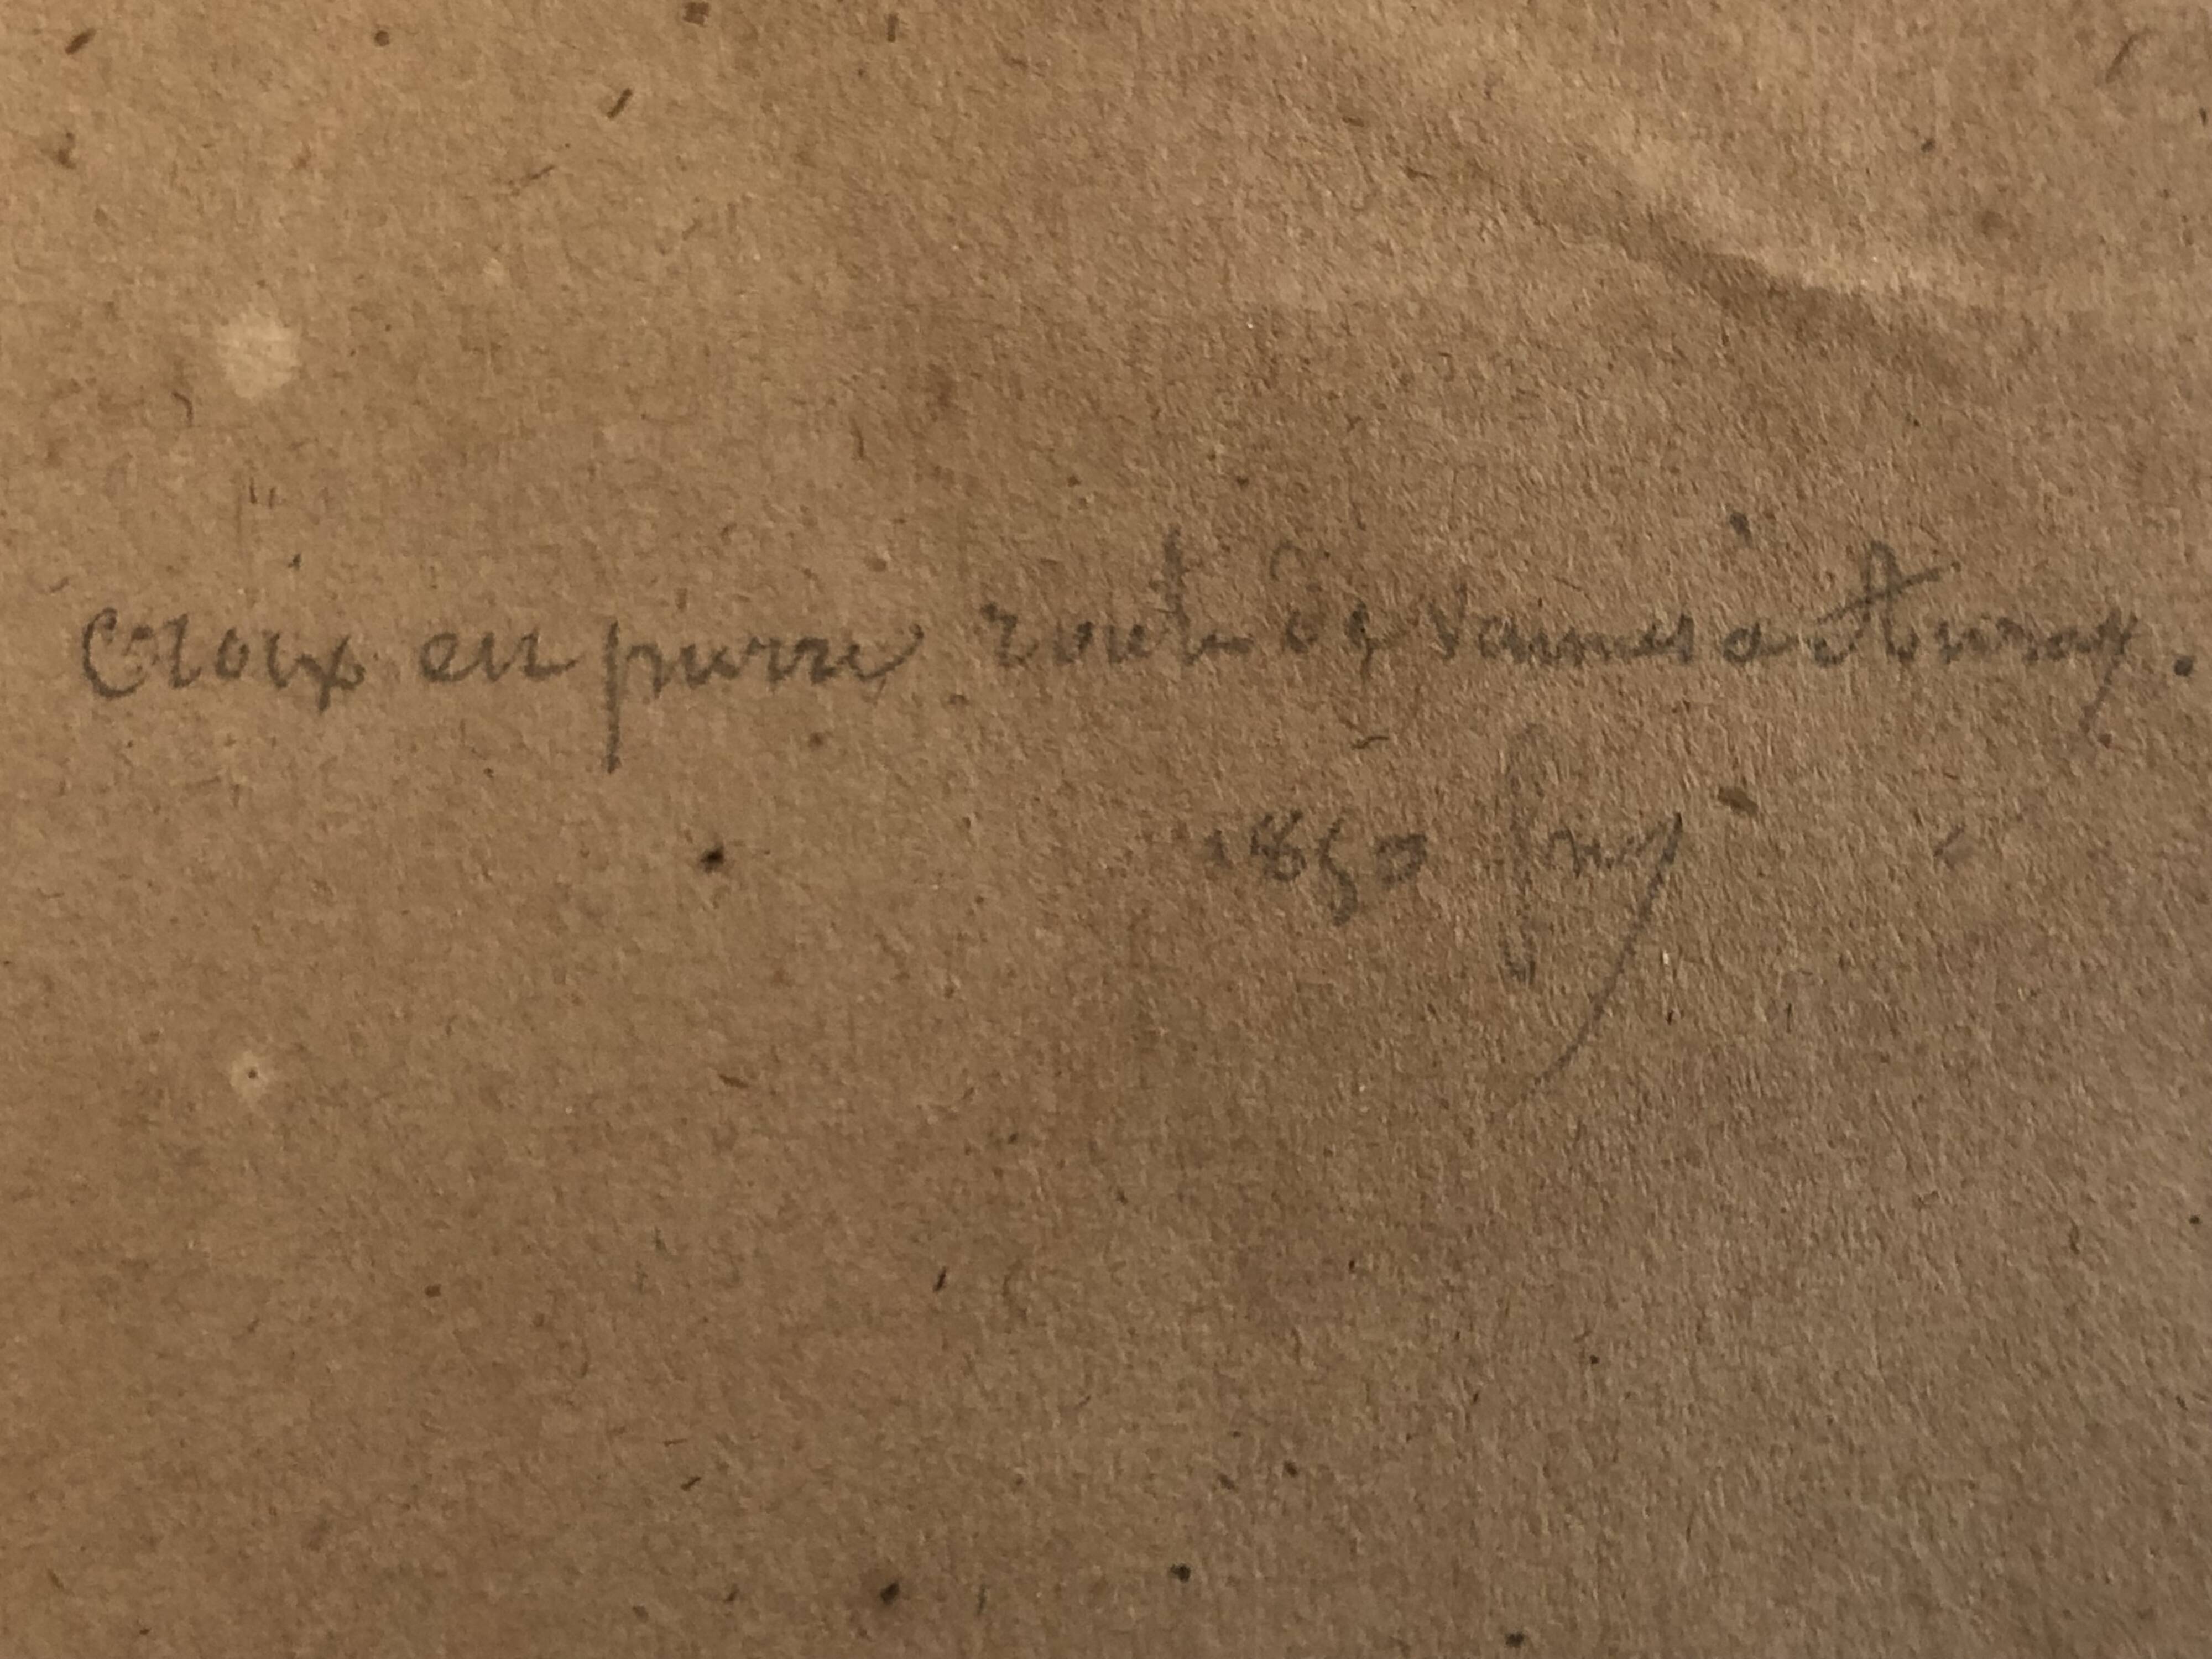 Croix en pierre route de Vannes à Auray.
1850